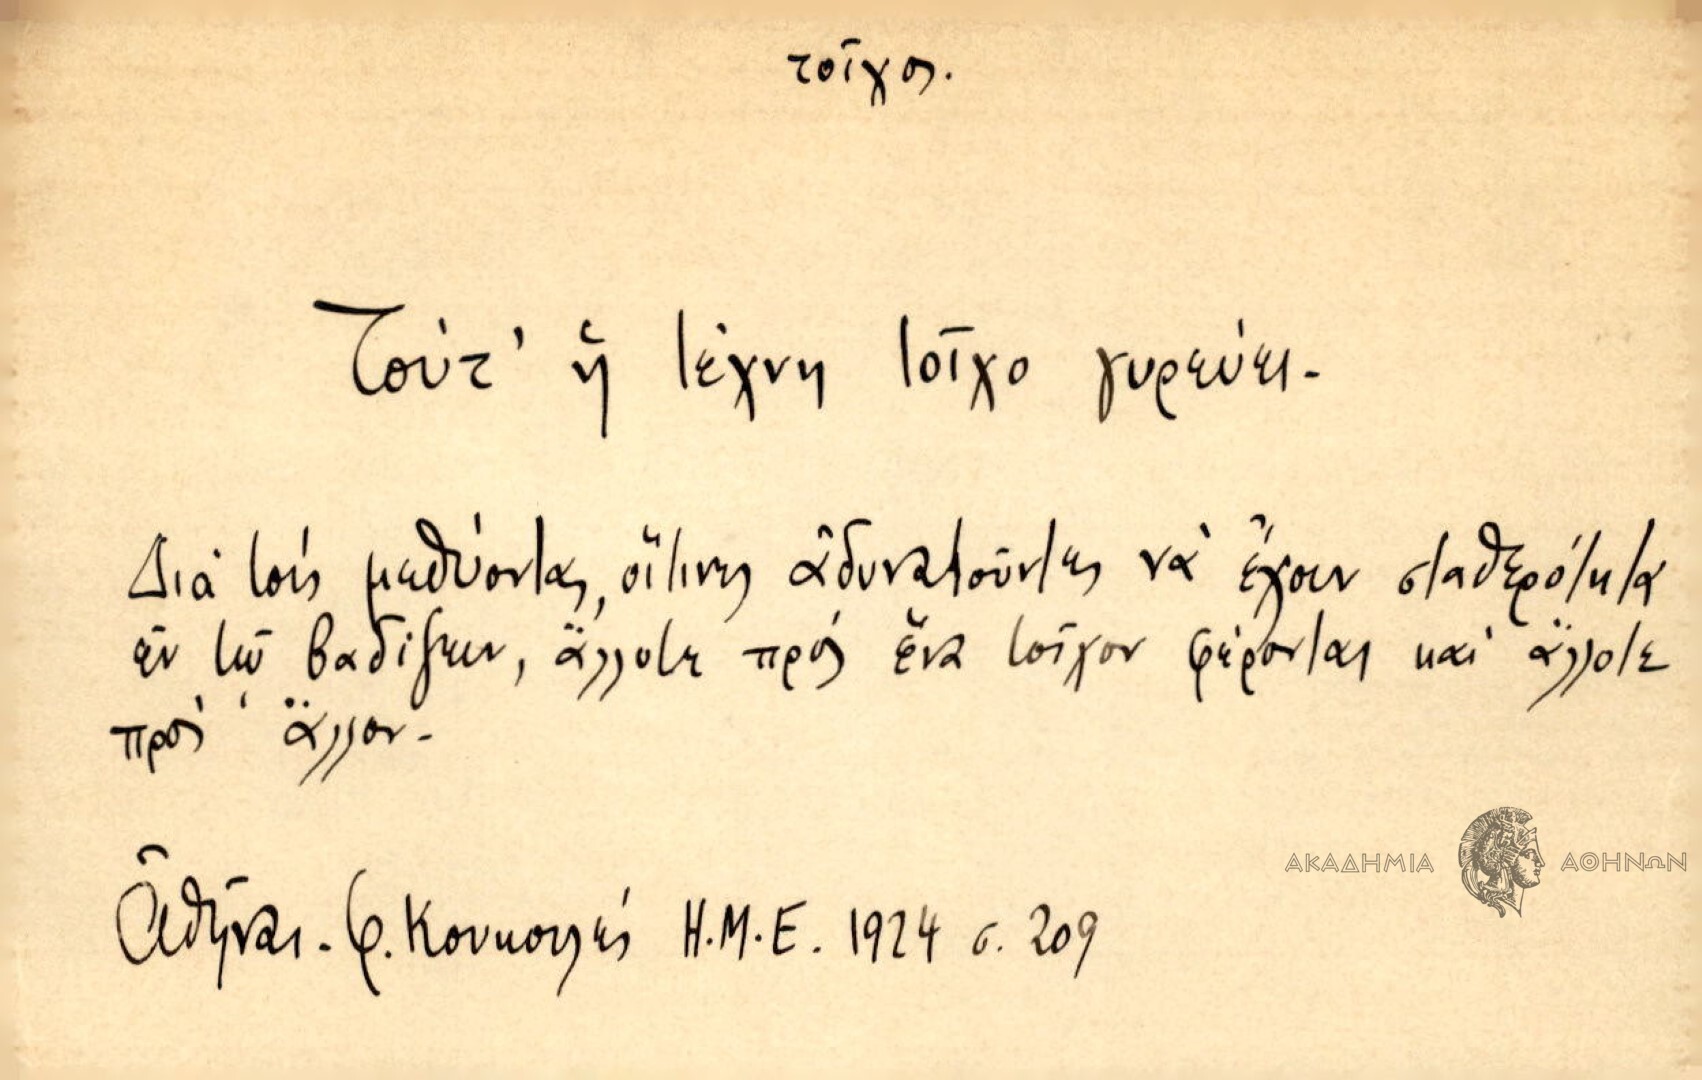 τοῖχος.
Τούτ' ἡ τέχνη τοῖχο γυρεύει.
Διά τούς μεθύοντας, οἵτινες ἀδυνατοῦντες νά ἔχουν σταθερότητα
ἐν τῷ βαδίζειν, ἄλλοτε πρός ἕνα τοῖχον φέρονται καί ἄλλοτε
πρός ἄλλον.
ΑΚΑΔΗΜΙΑ ΑΘΗΝΩΝ
Ἀθῆναι. Φ. Κουκουλές Η.Μ.Ε. 1924 σ. 209